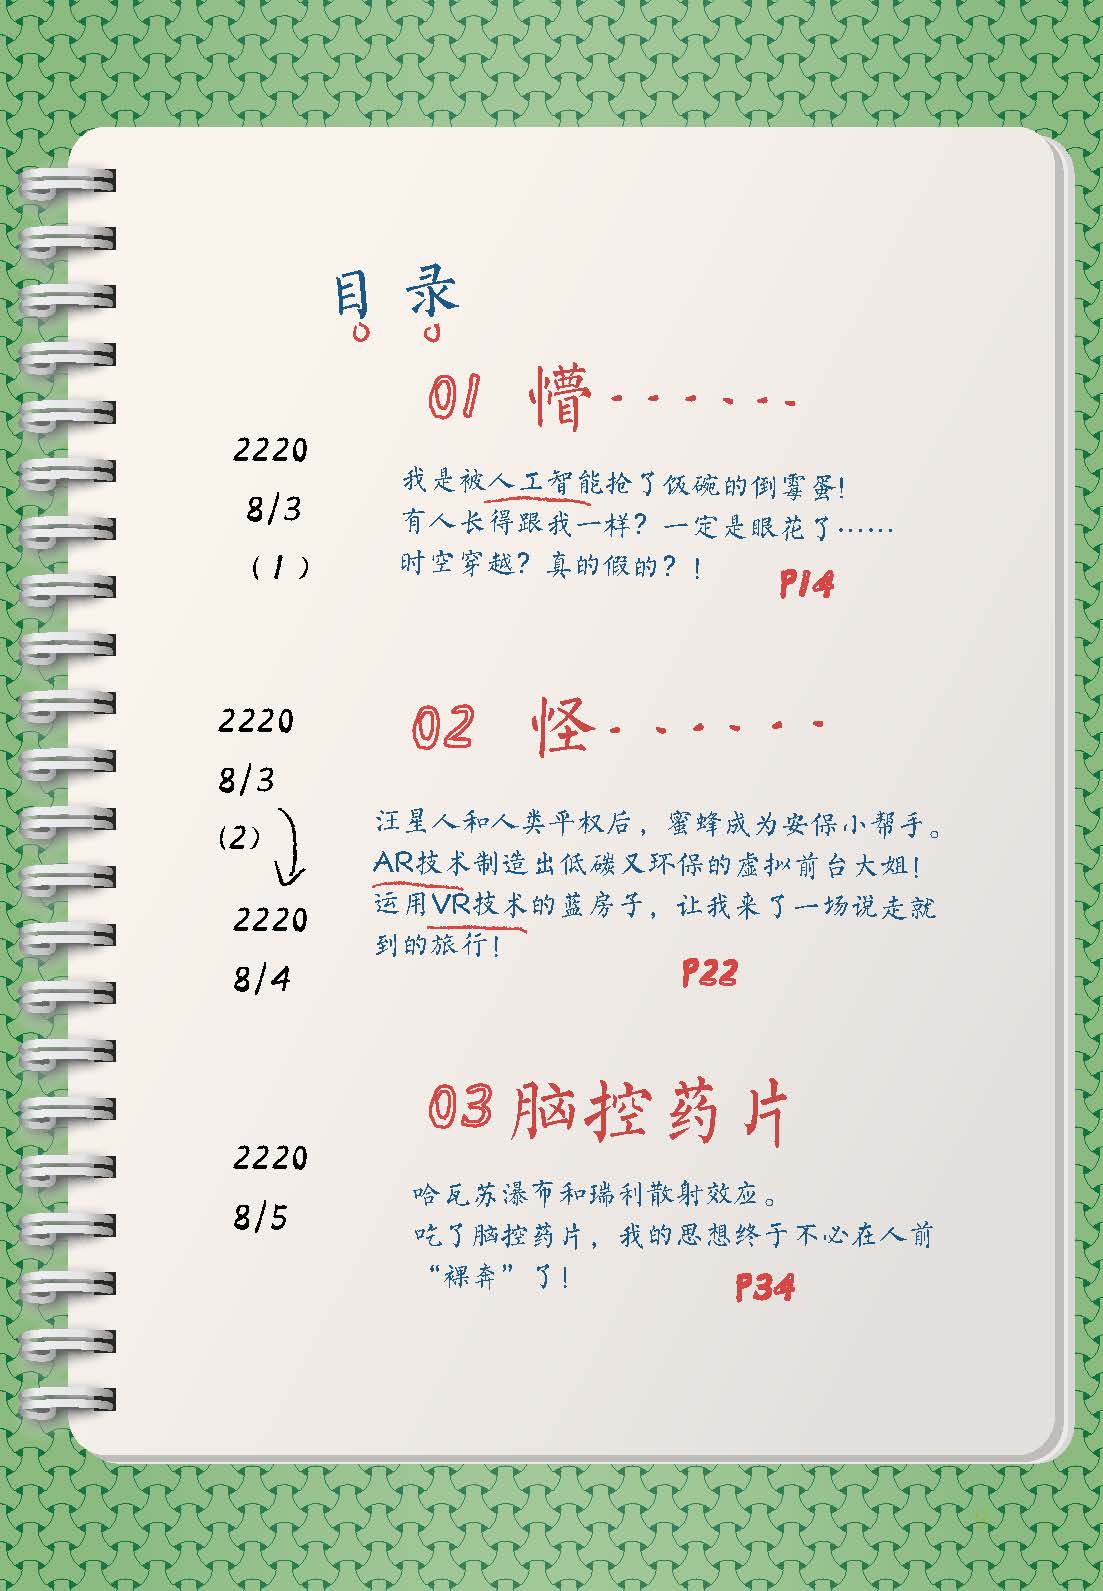 目 录
01 懵······
2220
8/3
(1)
我是被人工智能抢了饭碗的倒霉蛋!
有人长得跟我一样? 一定是眼花了……
时空穿越? 真的假的? !
P14
02 怪······
2220
8/3
(2)
2220
8/4
汪星人和人类平权后，蜜蜂成为安保小帮手。
AR技术制造出低碳又环保的虚拟前台大姐!
运用VR技术的蓝房子，让我来了一场说走就
到的旅行!
P22
03 脑控药片
2220
8/5
哈瓦苏瀑布和瑞利散射效应。
吃了脑控药片，我的思想终于不必在人前
“裸奔”了!
P34